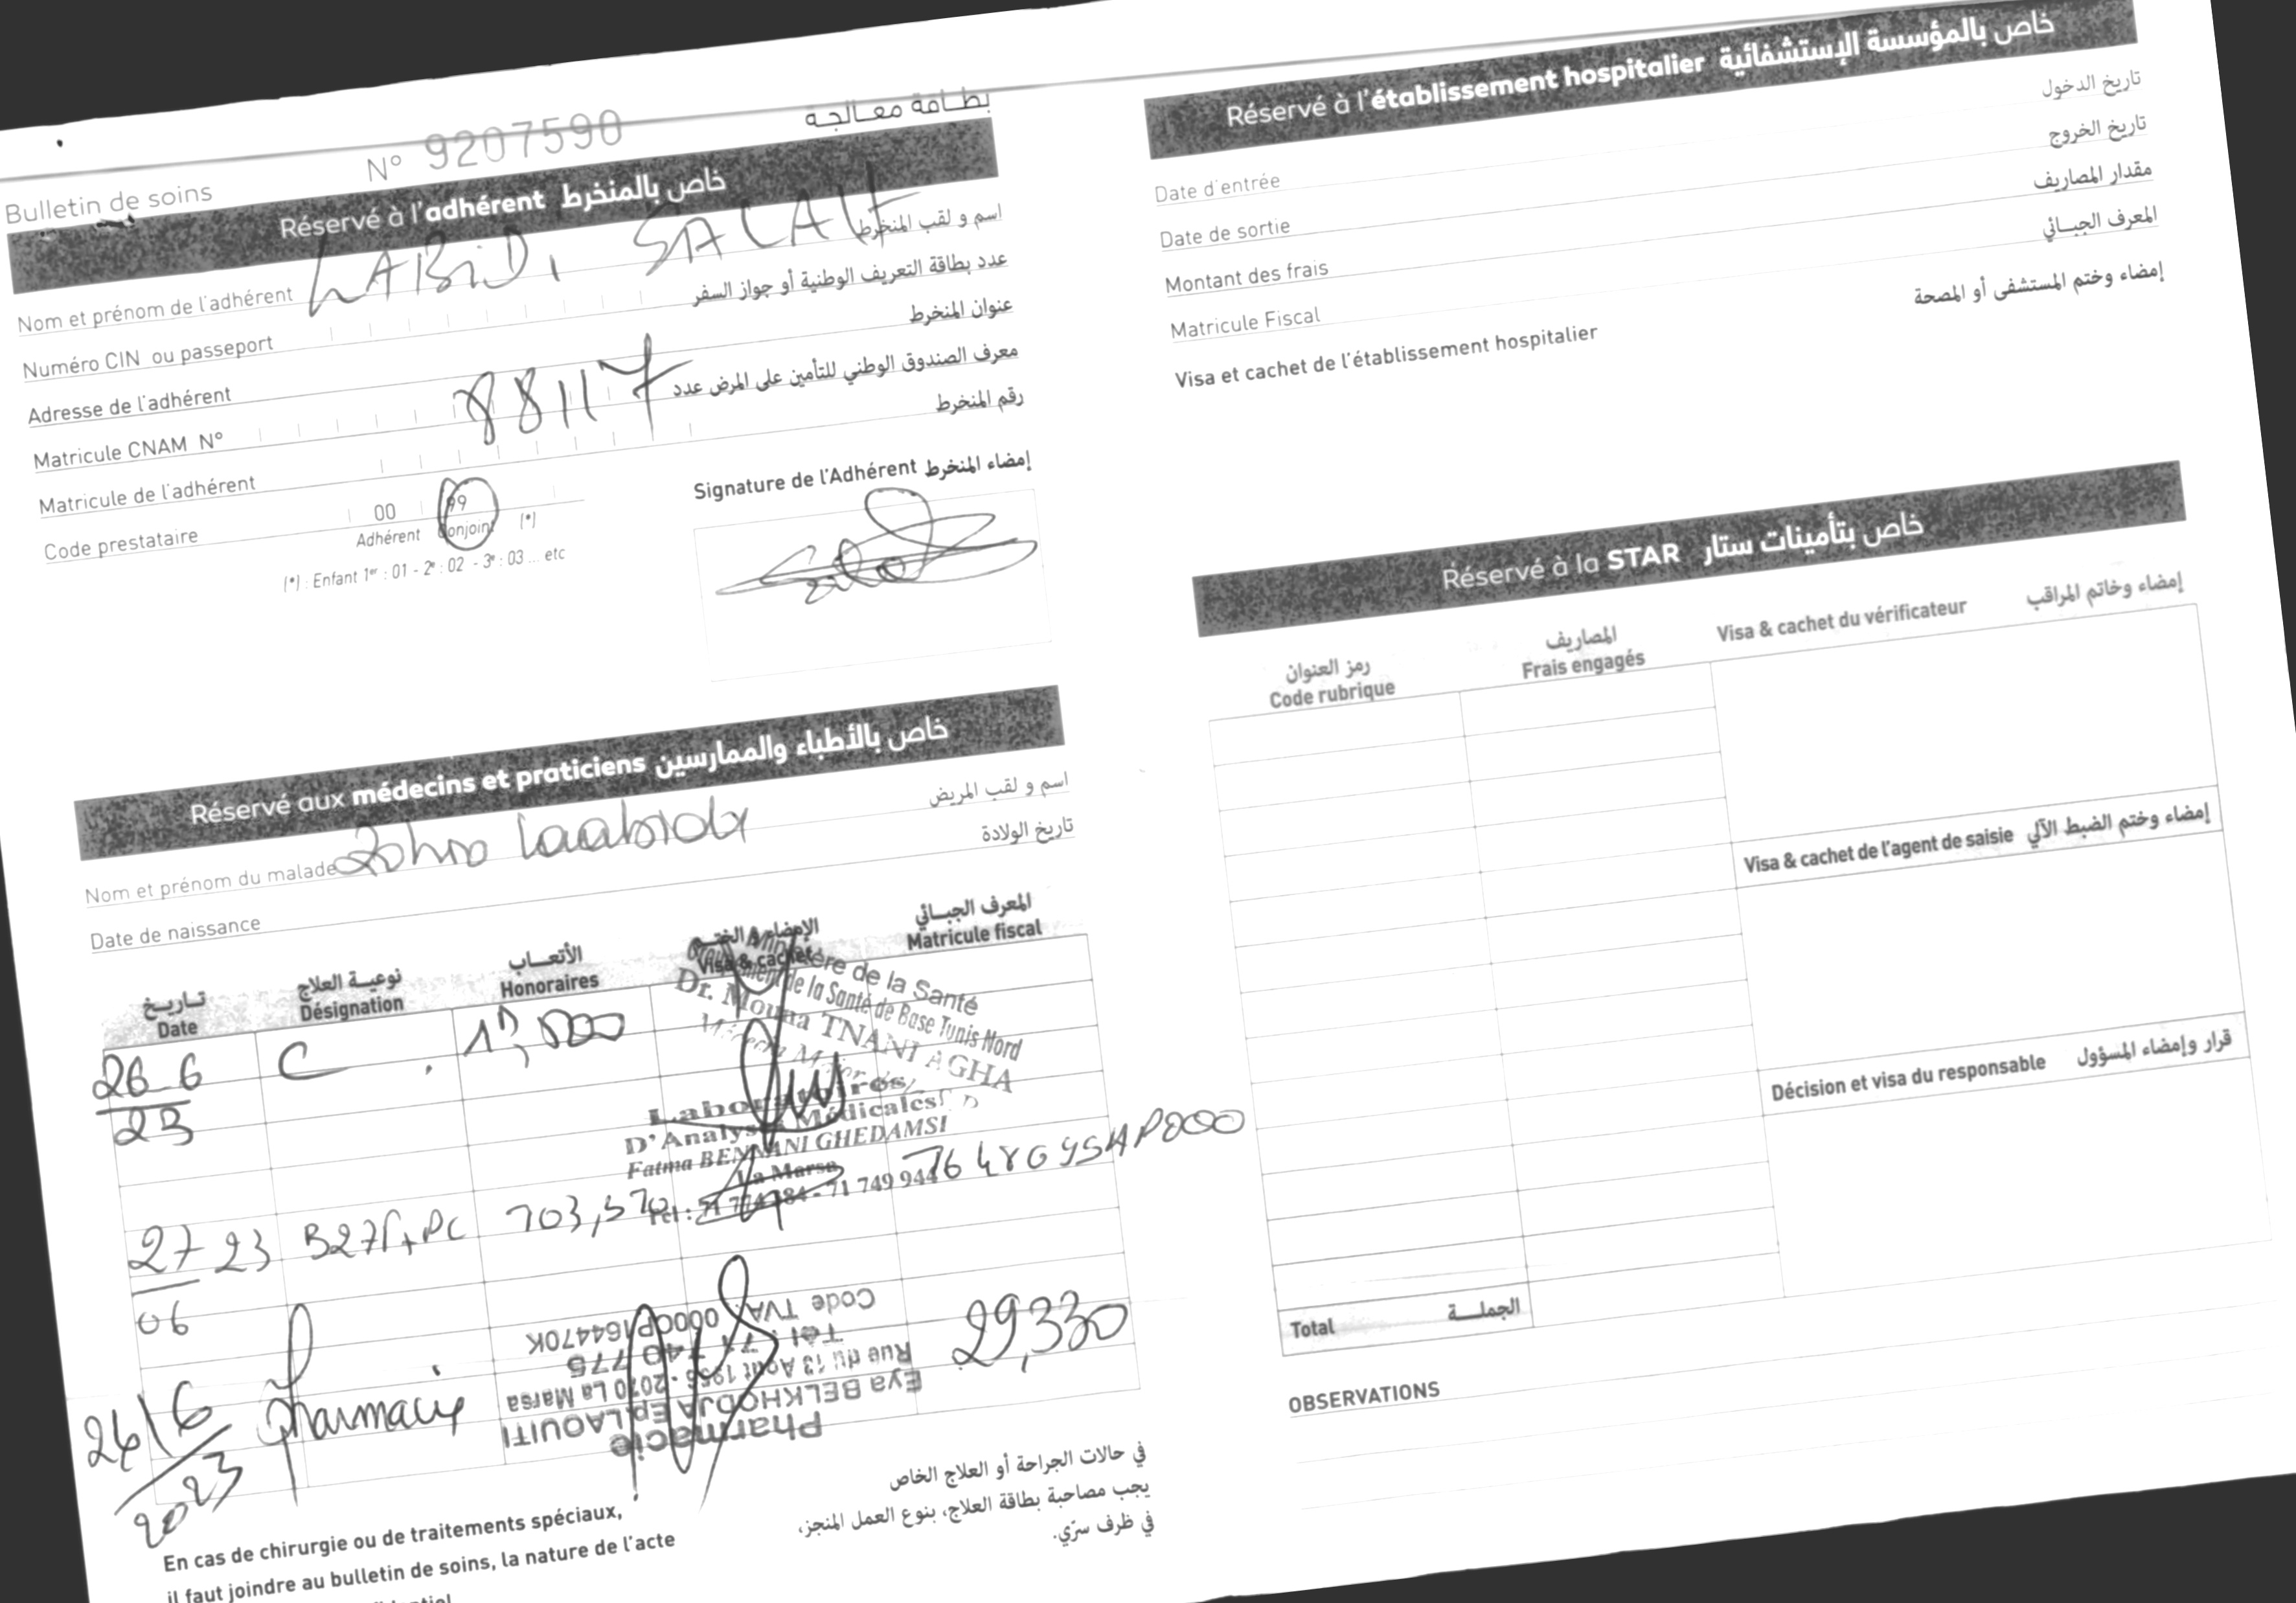 Bulletin de soins
N° 9207590
بطاقة معالجة
Réservé à l'adhérent خاص بالمنخرط
Nom et prénom de l'adhérent LABIDI SALAH اسم و لقب المنخرط
Numéro CIN ou passeport عدد بطاقة التعريف الوطنية أو جواز السفر
Adresse de l'adhérent عنوان المنخرط
Matricule CNAM N° معرف الصندوق الوطني للتأمين على المرض عدد
Matricule de l'adhérent 88117 رقم المنخرط
Code prestataire 00 99
Adhérent Conjoint (*)
(*) : Enfant 1er : 01 - 2e : 02 - 3e : 03 ... etc
Signature de l'Adhérent إمضاء المنخرط
Réservé aux médecins et praticiens خاص بالأطباء والممارسين
Nom et prénom du malade اسم و لقب المريض
Date de naissance تاريخ الولادة
تاريخ نوعية العلاج الأتعاب الإمضاء و الختم المعرف الجبائي
Date Désignation Honoraires Visa & cachet Matricule fiscal
26 6 23 C 1D,800
Ministère de la Santé
de la Santé de Base Tunis Nord
Dr. Mouna TNANI AGHA
Laboratoires
D'Analyses Médicales
Fatma BENNANI GHEDAMSI
La Marsa
Tel : 71 774 184 - 71 749 944
27 06 23 703,570
24/6/2023 Pharmacie 29,330
Pharmacie
Eya BELKHODJA Ep. LAOUITI
Rue du 13 Août 1956 - 2070 La Marsa
Tel : 71 740 775
Code TVA
En cas de chirurgie ou de traitements spéciaux,
il faut joindre au bulletin de soins, la nature de l'acte
في حالات الجراحة أو العلاج الخاص
يجب مصاحبة بطاقة العلاج، بنوع العمل المنجز،
في ظرف سرّي.
Réservé à l'établissement hospitalier خاص بالمؤسسة الإستشفائية
Date d'entrée تاريخ الدخول
Date de sortie تاريخ الخروج
Montant des frais مقدار المصاريف
Matricule Fiscal المعرف الجبائي
Visa et cachet de l'établissement hospitalier إمضاء وختم المستشفى أو المصحة
Réservé à la STAR خاص بتأمينات ستار
رمز العنوان المصاريف
Code rubrique Frais engagés
Visa & cachet du vérificateur إمضاء وخاتم المراقب
Visa & cachet de l'agent de saisie إمضاء وختم الضبط الآلي
Décision et visa du responsable قرار وإمضاء المسؤول
Total الجملة
OBSERVATIONS